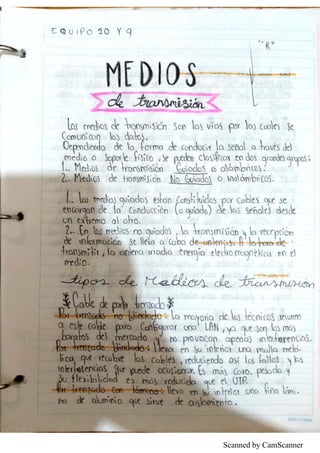 EQUIPO 10 Y 9
"R"
MEDIOS
de transmisión
Los medios de transmisión son las vías por las cuales se
Comunican los datos.
Dependiendo de la forma de conducir la señal a través del
medio o soporte físico, se pueden clasificar en dos grandes grupos:
1.. Medios de transmisión Guiados o alámbricos.
2.. Medios de transmisión No Guiados o inalámbricos.
1.. Los medios guiados están Constituidos por Cables que se
encargan de la conducción (o guiado) de las señales desde
un extremo al otro.
2.. En los medios no guiados, la transmisión y la recepción
de información se lleva a cabo de antenas. A la hora de
transmitir, la antena irradia energía electromagnética en el
medio.
tipos de Medios de transmisión
*Cable de par trenzado*
Par trenzado no blindado: La mayoria de los técnicos recurren
a este cable para Configurar una LAN, ya que son los más
baratos del mercado y no provocan apenas interferencias.
Par trenzado blindado: Lleva en su interior una malla metá-
lica, que recubre los cables, reduciendo así los fallos y las
interferencias que puede ocasionar. Es más caro, pesado y
su flexibilidad es más reducida que el UTP.
Par trenzado con lámina: lleva en su interior una fina lámi-
na de aluminio que sirve de aislamiento.
Scanned by CamScanner